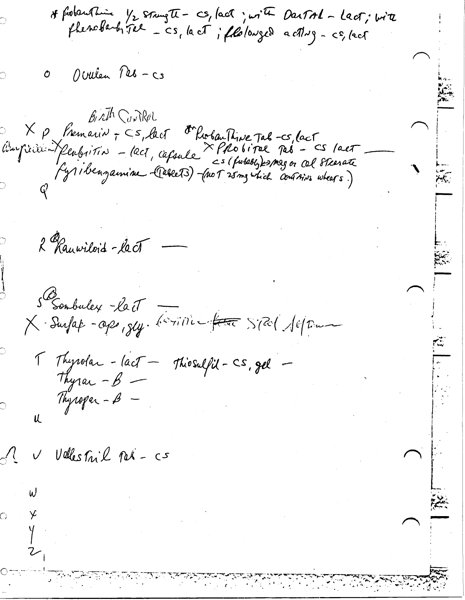 * Probanthine 1/2 strength - cs, lact ; with Dartal - lact ; with
phenobarbital - cs, lact ; prolonged acting - cs, lact
O Ovulen Tab - cs
Birth Control
X P Premarin - cs, lact * Probanthine Tab - cs, lact
X Penbritin - lact, capsule X Probital Tab - cs lact —
cs (potato) or mag or cal stearate
Pyribenzamine - (Tablets) - (not 25mg which contains wheat s.)
Q
R Rauwiloid - lact —
S Sombulex - lact —
X Surfak - cap, gly.
T Thyrolar - lact — Thiosulfil - cs, gel —
Thyrar - B —
Thyropar - B —
U
V Vallestril Tab - cs
W
X
Y
Z